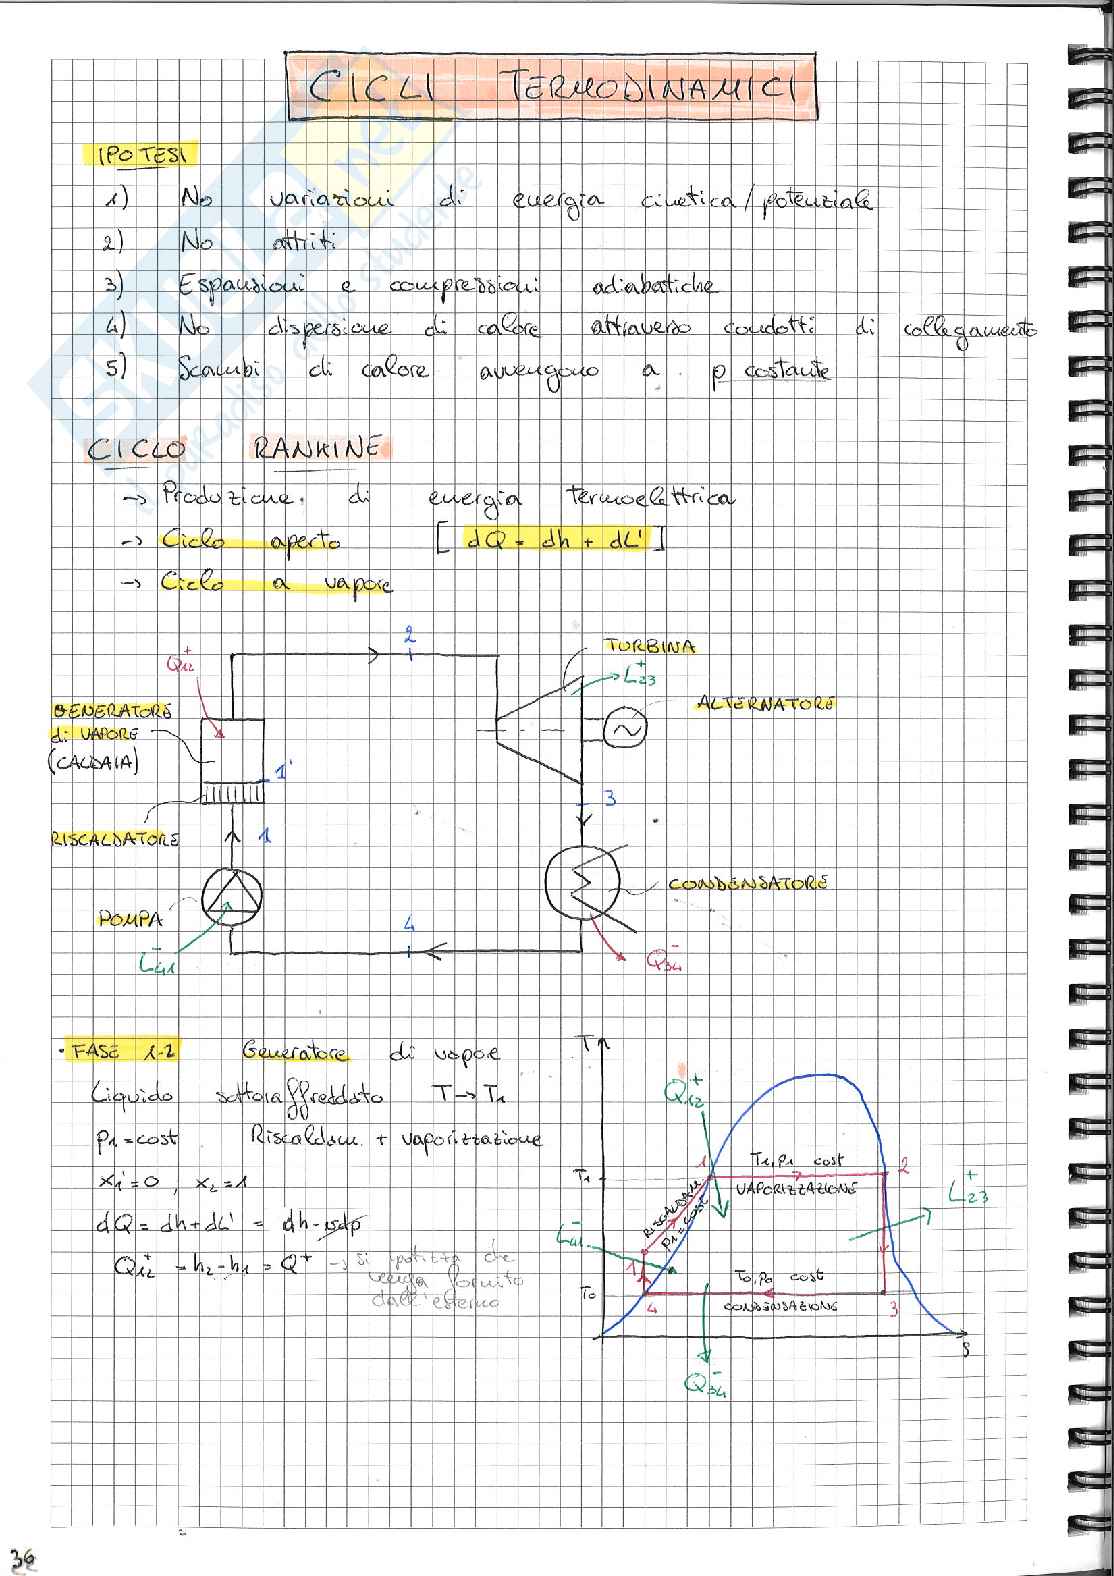 CICLI TERMODINAMICI
IPOTESI
1) No variazioni di energia cinetica/potenziale
2) No attriti
3) Espansioni e compressioni adiabatiche
4) No dispersione di calore attraverso condotti di collegamento
5) Scambi di calore avvengono a p costante
CICLO RANKINE
→ Produzione di energia termoelettrica
→ Ciclo aperto [ dQ = dh + dL' ]
→ Ciclo a vapore
2
TURBINA
Q12+
L23+
GENERATORE
di VAPORE
(CALDAIA)
ALTERNATORE
1'
3
RISCALDATORE
1
CONDENSATORE
POMPA
4
L41-
Q34-
• FASE 1-2 Generatore di vapore
Liquido sottoraffreddato T → T1
p1 = cost Riscaldam + vaporizzazione
x1 = 0 , x2 = 1
dQ = dh + dL' = dh - vdp
Q12+ = h2 - h1 = Q+ → si ipotizza che
venga fornito
dall'esterno
T
Q12+
T1
1'
T1, p1 cost
2
VAPORIZZAZIONE
RISCALDAM
p1 = cost
L23+
L41-
1
T0
T0, p0 cost
4
CONDENSAZIONE
3
S
Q34-
36
SKUOLA.net
il paradiso dello studente